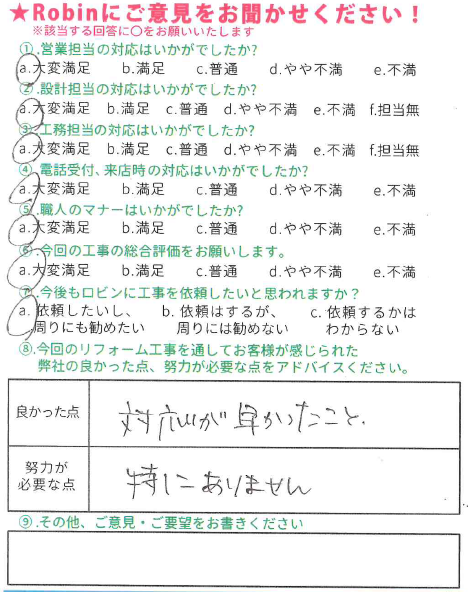 ★Robinにご意見をお聞かせください！
※該当する回答に〇をお願いいたします
①.営業担当の対応はいかがでしたか?
a.大変満足 b.満足 c.普通 d.やや不満 e.不満
②.設計担当の対応はいかがでしたか?
a.大変満足 b.満足 c.普通 d.やや不満 e.不満 f.担当無
③.工務担当の対応はいかがでしたか?
a.大変満足 b.満足 c.普通 d.やや不満 e.不満 f.担当無
④.電話受付、来店時の対応はいかがでしたか?
a.大変満足 b.満足 c.普通 d.やや不満 e.不満
⑤.職人のマナーはいかがでしたか?
a.大変満足 b.満足 c.普通 d.やや不満 e.不満
⑥.今回の工事の総合評価をお願いします。
a.大変満足 b.満足 c.普通 d.やや不満 e.不満
⑦.今後もロビンに工事を依頼したいと思われますか？
a. 依頼したいし、 b. 依頼はするが、 c. 依頼するかは
周りにも勧めたい 周りには勧めない わからない
⑧.今回のリフォーム工事を通してお客様が感じられた
弊社の良かった点、努力が必要な点をアドバイスください。
良かった点 対応が早かったこと.
努力が
必要な点 特にありません
⑨.その他、ご意見・ご要望をお書きください